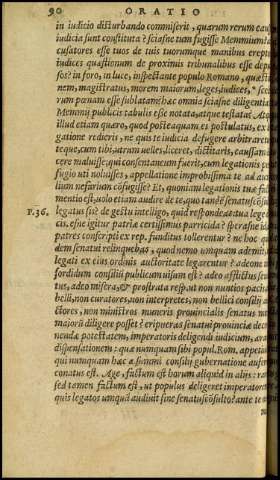 90 ORATIO
in iudicio disturbando commiserit, quarum rerum cau
iudicia sunt constituta? scisne tum fugisse Memmium
cusatores esse tuos de tuis tuorumque manibus erept
iudices quæstionum de proximis tribunalibus esse depu
sos? in foro, in luce, inspectante populo Romano, quæsti
nem, magistratus, morem maiorum, leges, iudices,
rum pœnam esse sublatam? hæc omnia scisne diligentia
Memmij publicis tabulis esse notata, atque testata? At
illud etiam quæro, quod posteaquam es postulatus, ex
gatione redieris, ne quis te iudicia defugere arbitrare
teque, cum tibi, utrum uelles, liceret, dictitaris, caussam
cere maluisse: qui consentaneum fuerit, cum legationis
fugio uti noluisses, appellatione improbissima te ad au
lium nefarium cōfugisse? Et, quoniam legationis tuæ fact
mentio est, uolo etiam audire de te, quo tandē senatuscōsul
P. 36. legatus sis? de gestu intelligo, quid respondeas: tua lege
cis. esne igitur patriæ certissimus parricida? speras ne id
patres conscripti ex rep. funditus tollerentur? ne hoc qui
dem senatui relinquebas, quod nemo umquam ademit,
legati ex eius ordinis auctoritate legarentur? adeone
sordidum consiliū publicum uisum est? adeo afflictus
tus, adeo misera, & prostrata resp. ut non nuntios pacis
belli, non curatores, non interpretes, non bellici consilij
ctores, non ministros muneris prouincialis senatus
maiorū diligere posset? eripueras senatui prouinciæ decer
nendæ potestatem, imperatoris deligendi iudicium,
dispensationem: quæ numquam sibi popul. Rom. appetiui
qui numquam hæc à summi consilij gubernatione auferre
conatus est. Age, factum est horum aliquid in alijs: raro
sed tamen factum est, ut populus deligeret imperatorem
quis legatos umquā audiuit sine senatuscōsulto? ante te